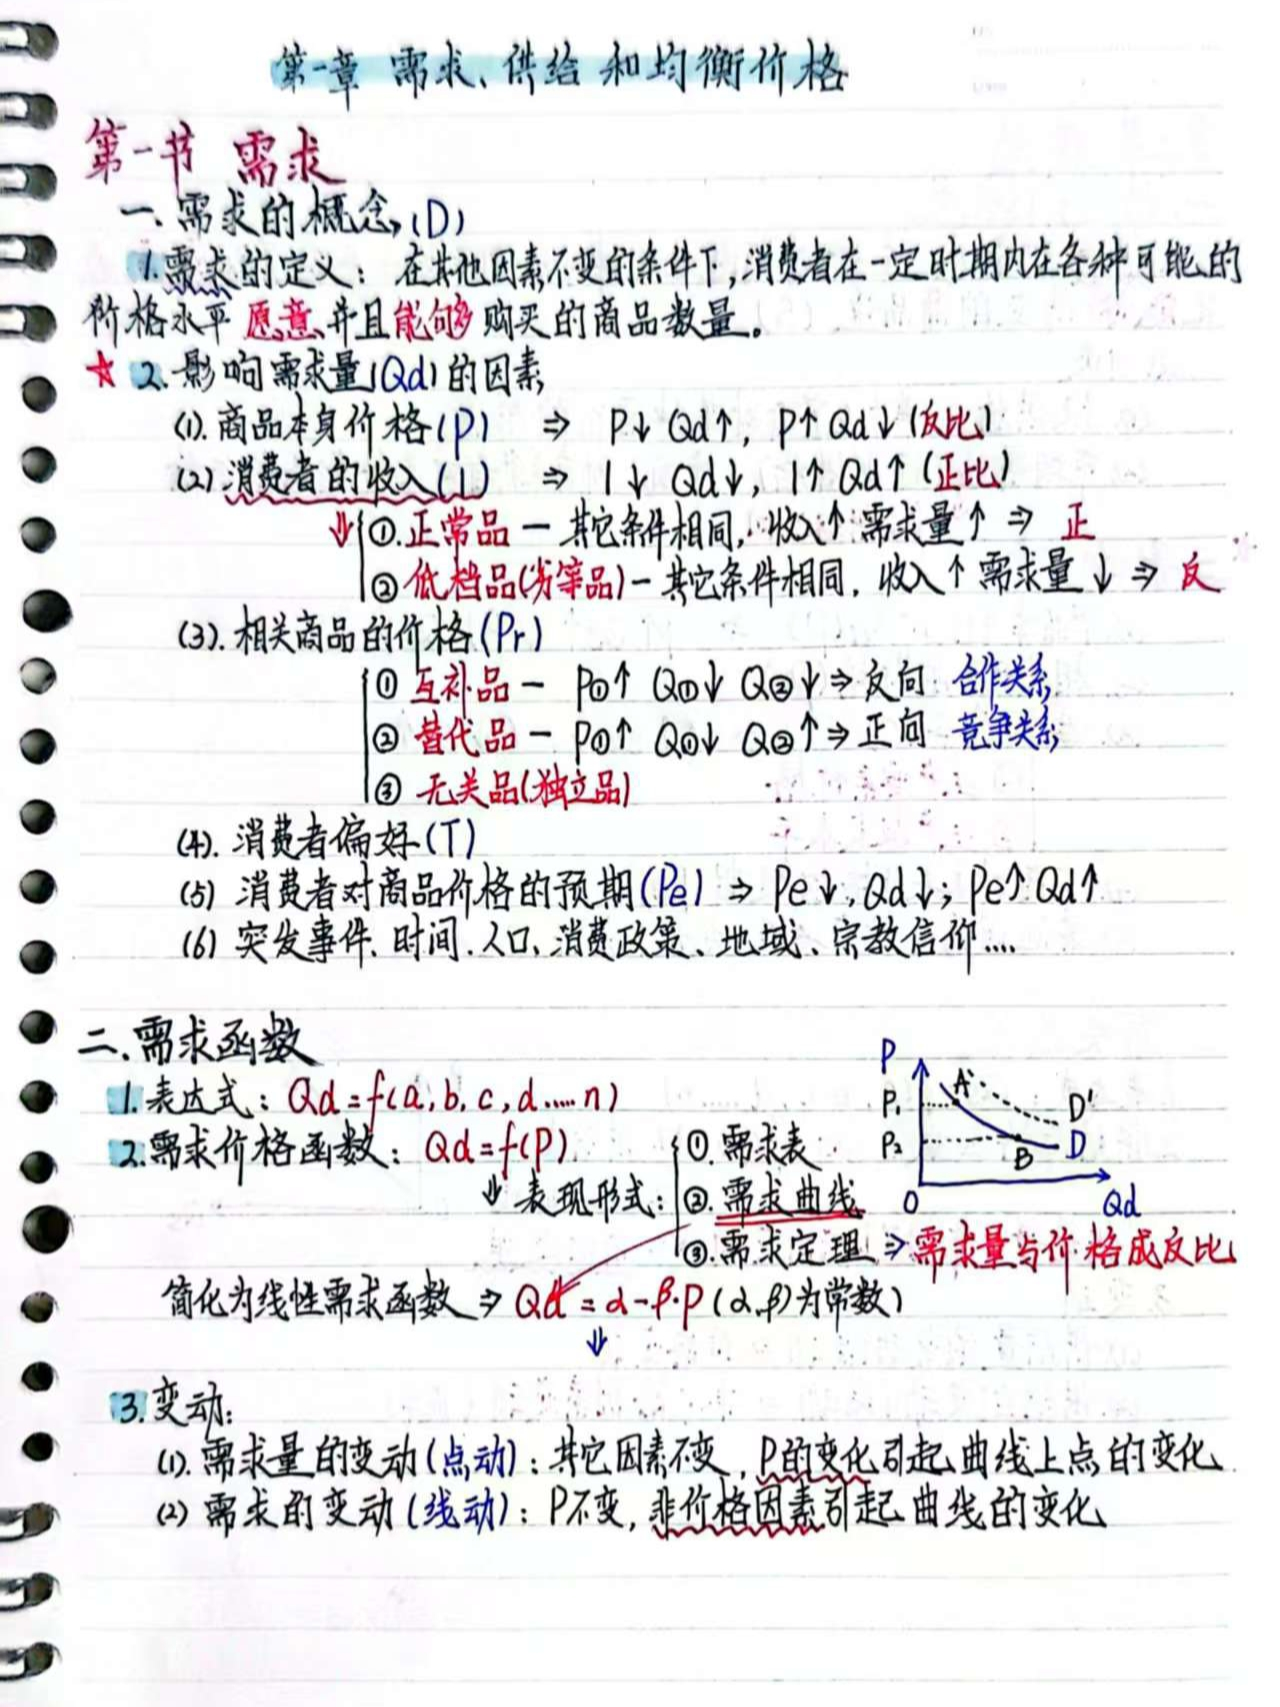 第一章 需求、供给和均衡价格
第一节 需求
一、需求的概念,(D)
1.需求的定义：在其他因素不变的条件下,消费者在一定时期内在各种可能的
价格水平愿意并且能够购买的商品数量。
★ 2.影响需求量(Qd)的因素
(1).商品本身价格(P) ⇒ P↓ Qd↑, P↑ Qd↓(反比)
(2)消费者的收入(I) ⇒ I↓ Qd↓, I↑ Qd↑(正比)
⇓ ①.正常品 — 其它条件相同,收入↑ 需求量↑ ⇒ 正
② 低档品(劣等品) — 其它条件相同,收入↑ 需求量↓ ⇒ 反
(3).相关商品的价格(Pr)
① 互补品 — P①↑ Q①↓ Q②↓ ⇒ 反向 合作关系
② 替代品 — P①↑ Q①↓ Q②↑ ⇒ 正向 竞争关系
③ 无关品(独立品)
(4).消费者偏好(T)
(5) 消费者对商品价格的预期(Pe) ⇒ Pe↓,Qd↓; Pe↑ Qd↑
(6) 突发事件、时间、人口、消费政策、地域、宗教信仰....
二、需求函数
1.表达式：Qd=f(a,b,c,d.....n)
2.需求价格函数：Qd=f(P)
⇓ 表现形式：
①.需求表
②.需求曲线
③.需求定理 ⇒ 需求量与价格成反比
P
P₁
P₂
A
B
D'
D
O
Qd
简化为线性需求函数 ⇒ Qd = α-β·P (α,β)为常数)
⇓
3.变动：
(1).需求量的变动(点动)：其它因素不变,P的变化引起曲线上点的变化
(2) 需求的变动(线动)：P不变,非价格因素引起曲线的变化